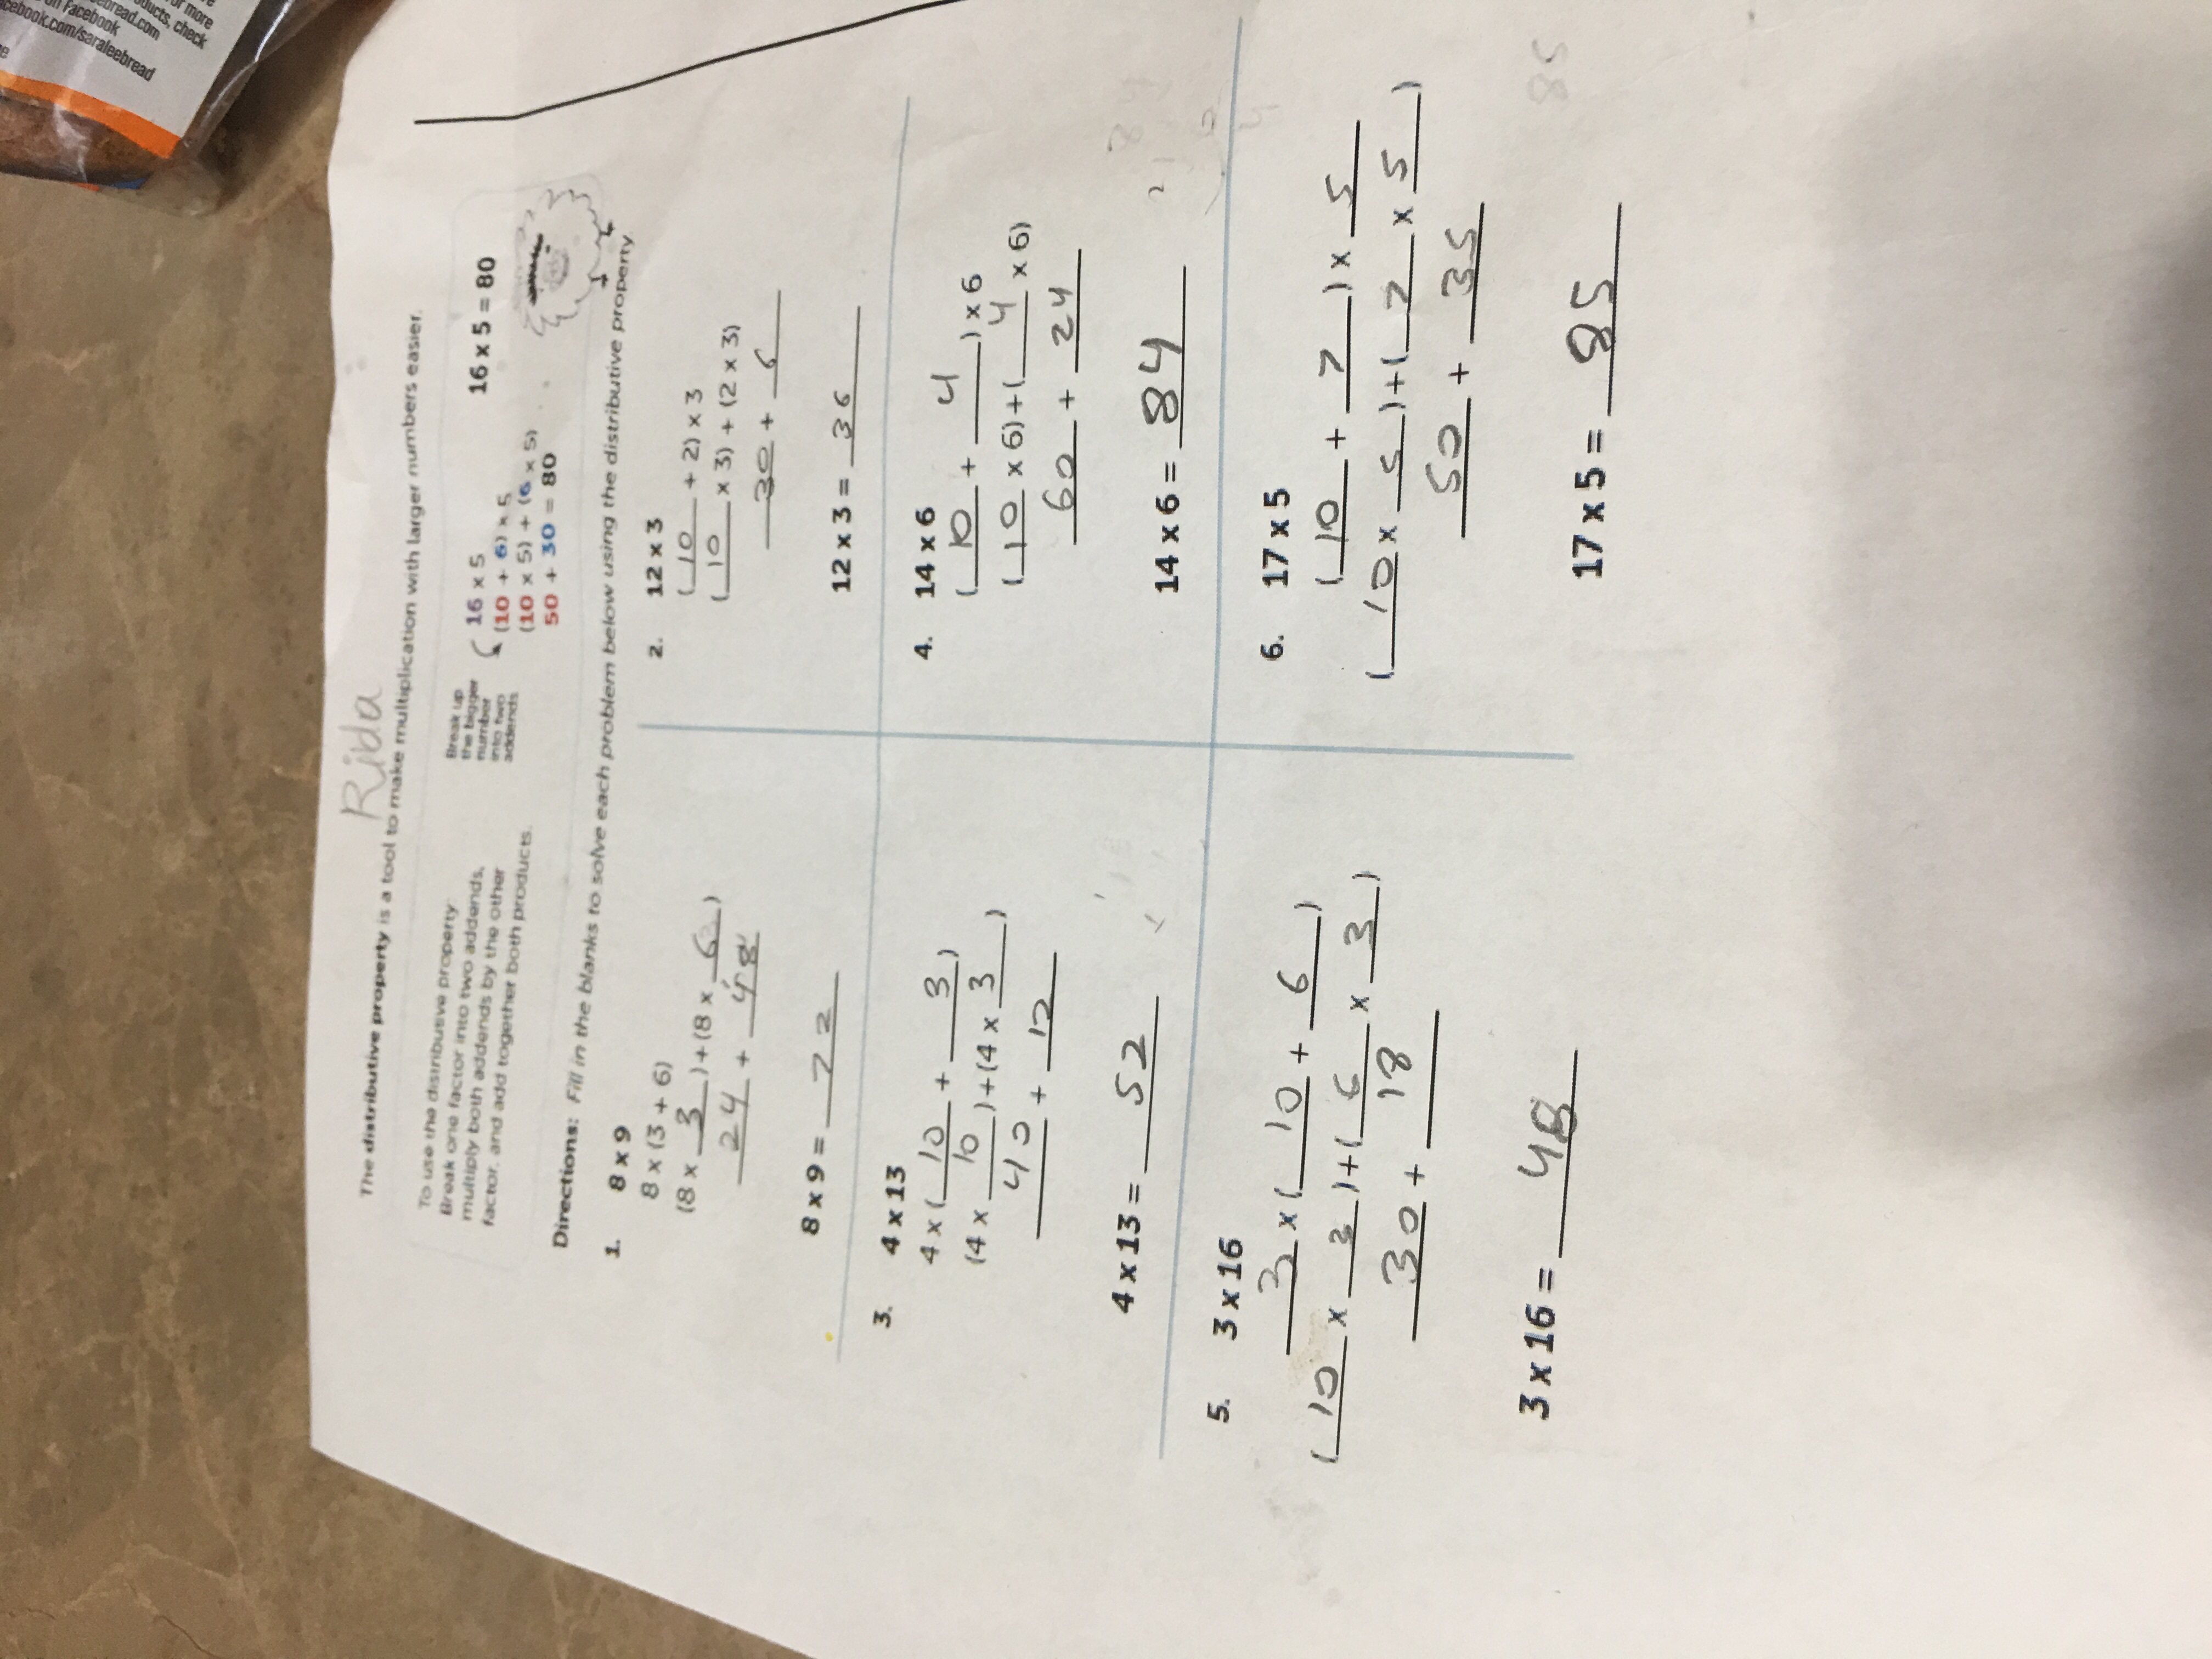 facebook.com/saraleebread
Rida
The distributive property is a tool to make multiplication with larger numbers easier.
To use the distributive property:
Break one factor into two addends,
multiply both addends by the other
factor, and add together both products.
Break up
the bigger
number
into two
addends
16 x 5
(10 + 6) x 5
(10 x 5) + (6 x 5)
50 + 30 = 80
16 x 5 = 80
Directions: Fill in the blanks to solve each problem below using the distributive property
1. 8 x 9
8 x (3 + 6)
(8 x 3 ) + (8 x 6 )
24 + 48
8 x 9 = 72
2. 12 x 3
( 10 + 2) x 3
( 10 x 3) + (2 x 3)
30 + 6
12 x 3 = 36
3. 4 x 13
4 x ( 10 + 3 )
(4 x 10 ) + (4 x 3 )
40 + 12
4 x 13 = 52
4. 14 x 6
( 10 + 4 ) x 6
( 10 x 6) + ( 4 x 6)
60 + 24
14 x 6 = 84
5. 3 x 16
3 x ( 10 + 6 )
( 10 x 3 ) + ( 6 x 3 )
30 + 18
3 x 16 = 48
6. 17 x 5
( 10 + 7 ) x 5
( 10 x 5 ) + ( 7 x 5 )
50 + 35
17 x 5 = 85
85